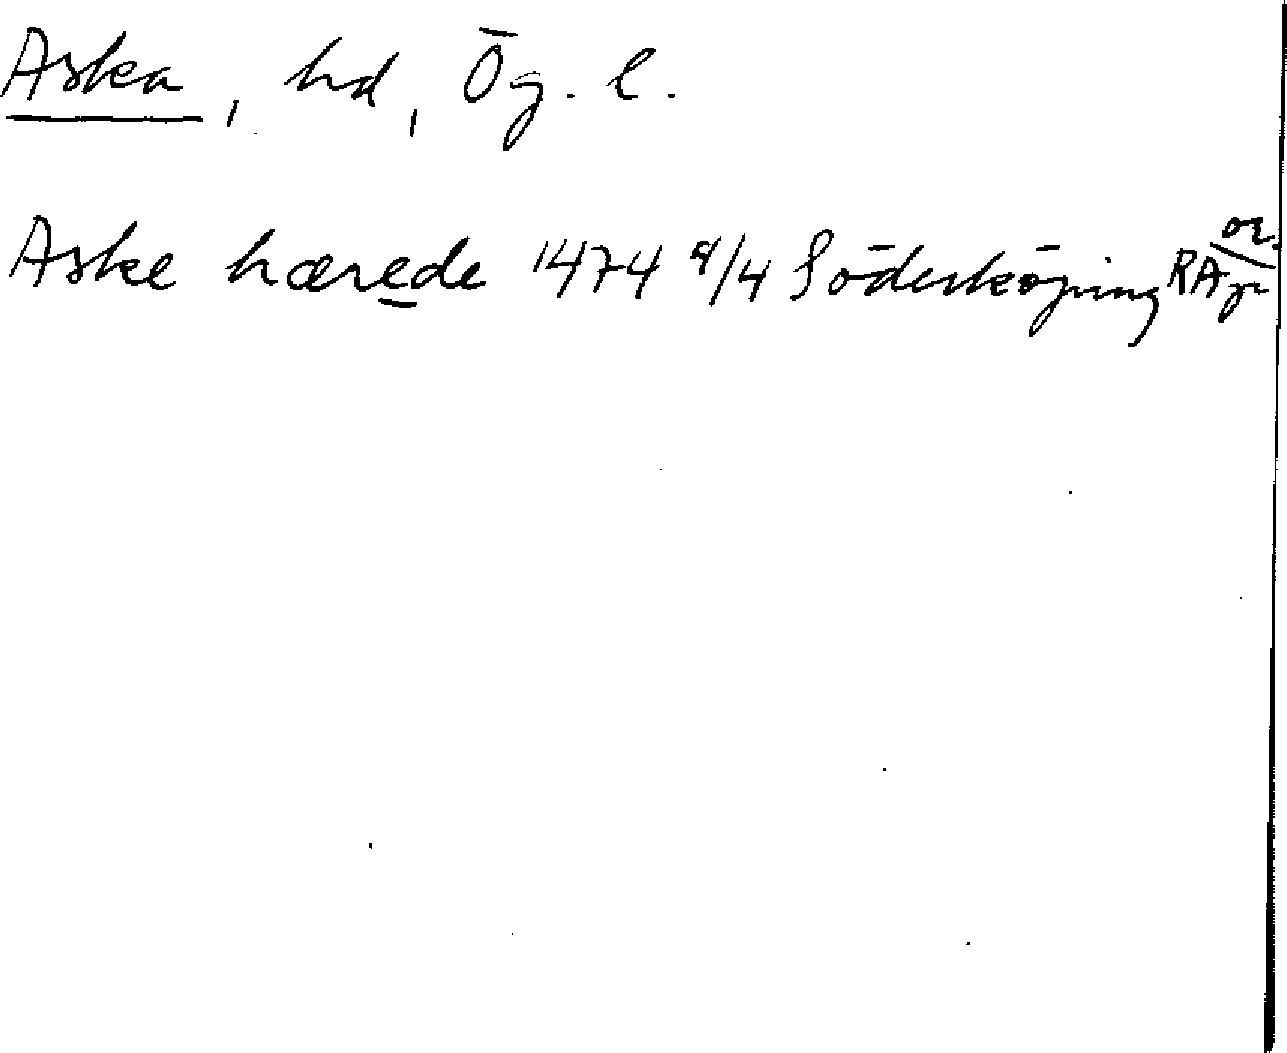 Aska, hd, Ög. l.
Aske hærede 1474 9/4 Söderköping RA or. p